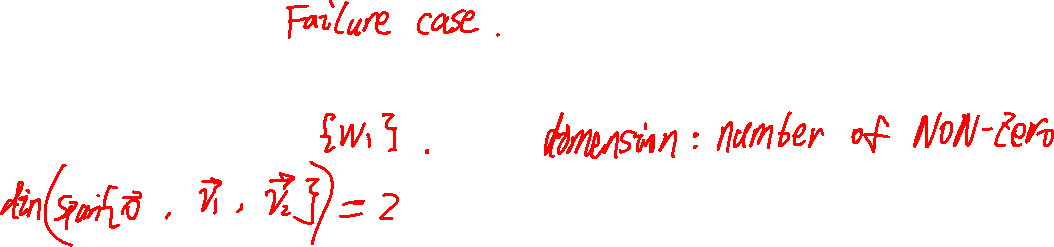 Failure case.
{W₁}. dimension: number of NON-Zero
dim(span{0⃗, v⃗₁, v⃗₂})=2